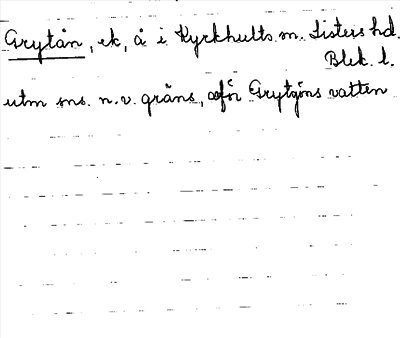 Grytån, ek, å i Kyrkhults sn. Listers hd.
Blek. l.
utm sns. n.v. gräns, avför Grytsjöns vatten